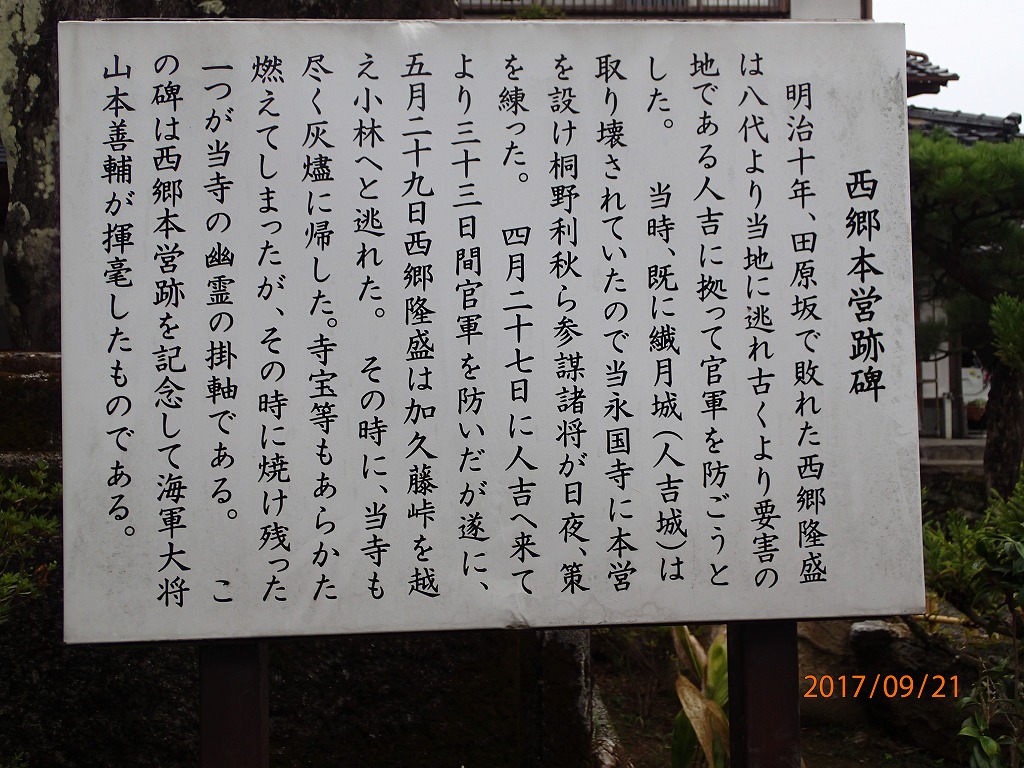 西郷本営跡碑
明治十年、田原坂で敗れた西郷隆盛
は八代より当地に逃れ古くより要害の
地である人吉に拠って官軍を防ごうと
した。 当時、既に繊月城(人吉城)は
取り壊されていたので当永国寺に本営
を設け桐野利秋ら参謀諸将が日夜、策
を練った。 四月二十七日に人吉へ来て
より三十三日間官軍を防いだが遂に、
五月二十九日西郷隆盛は加久藤峠を越
え小林へと逃れた。 その時に、当寺も
尽く灰燼に帰した。寺宝等もあらかた
燃えてしまったが、その時に焼け残った
一つが当寺の幽霊の掛軸である。 こ
の碑は西郷本営跡を記念して海軍大将
山本善輔が揮毫したものである。
2017/09/21